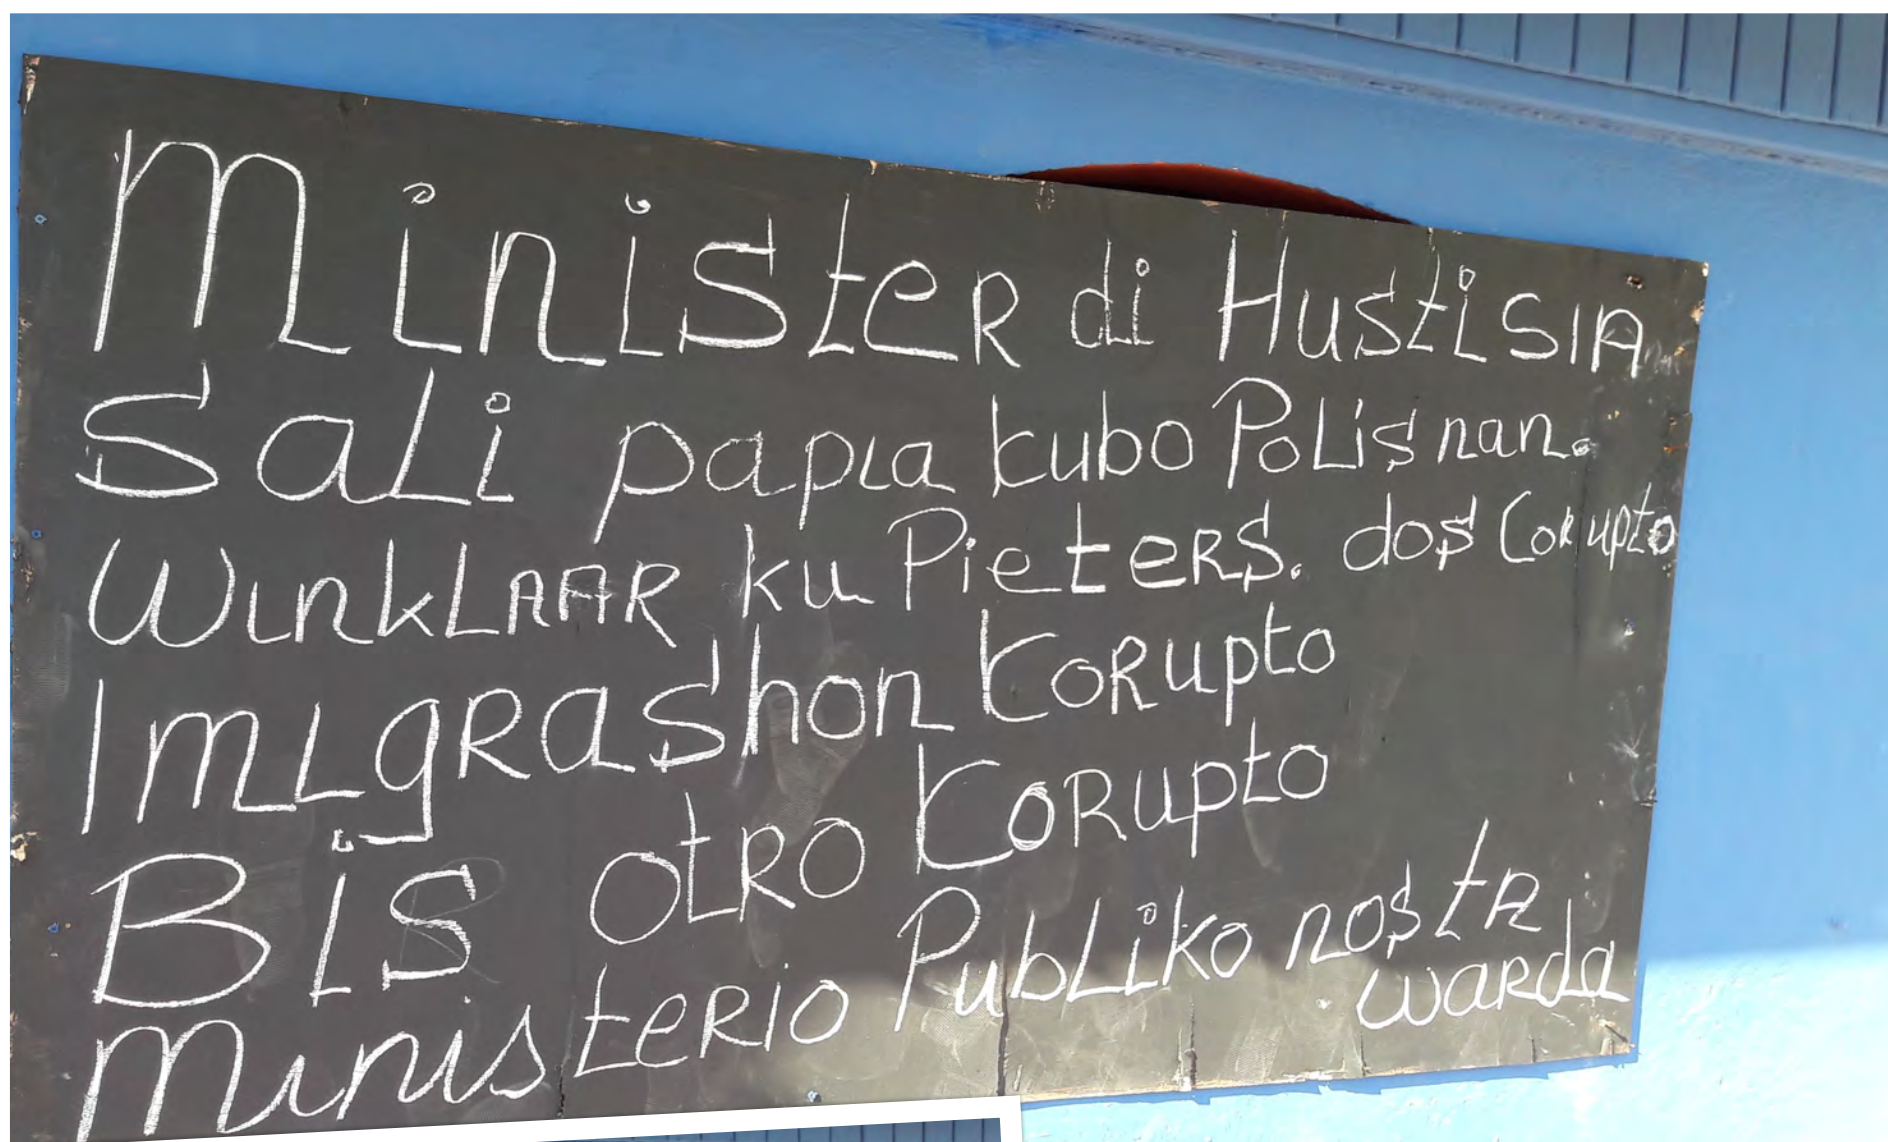 Minister di Hustisia
Sali papia kubo Polisnan.
Winklaar ku Pieters. dos Corupto
Imigrashon Korupto
Bis otro Korupto
Ministerio Publiko nos ta
warda